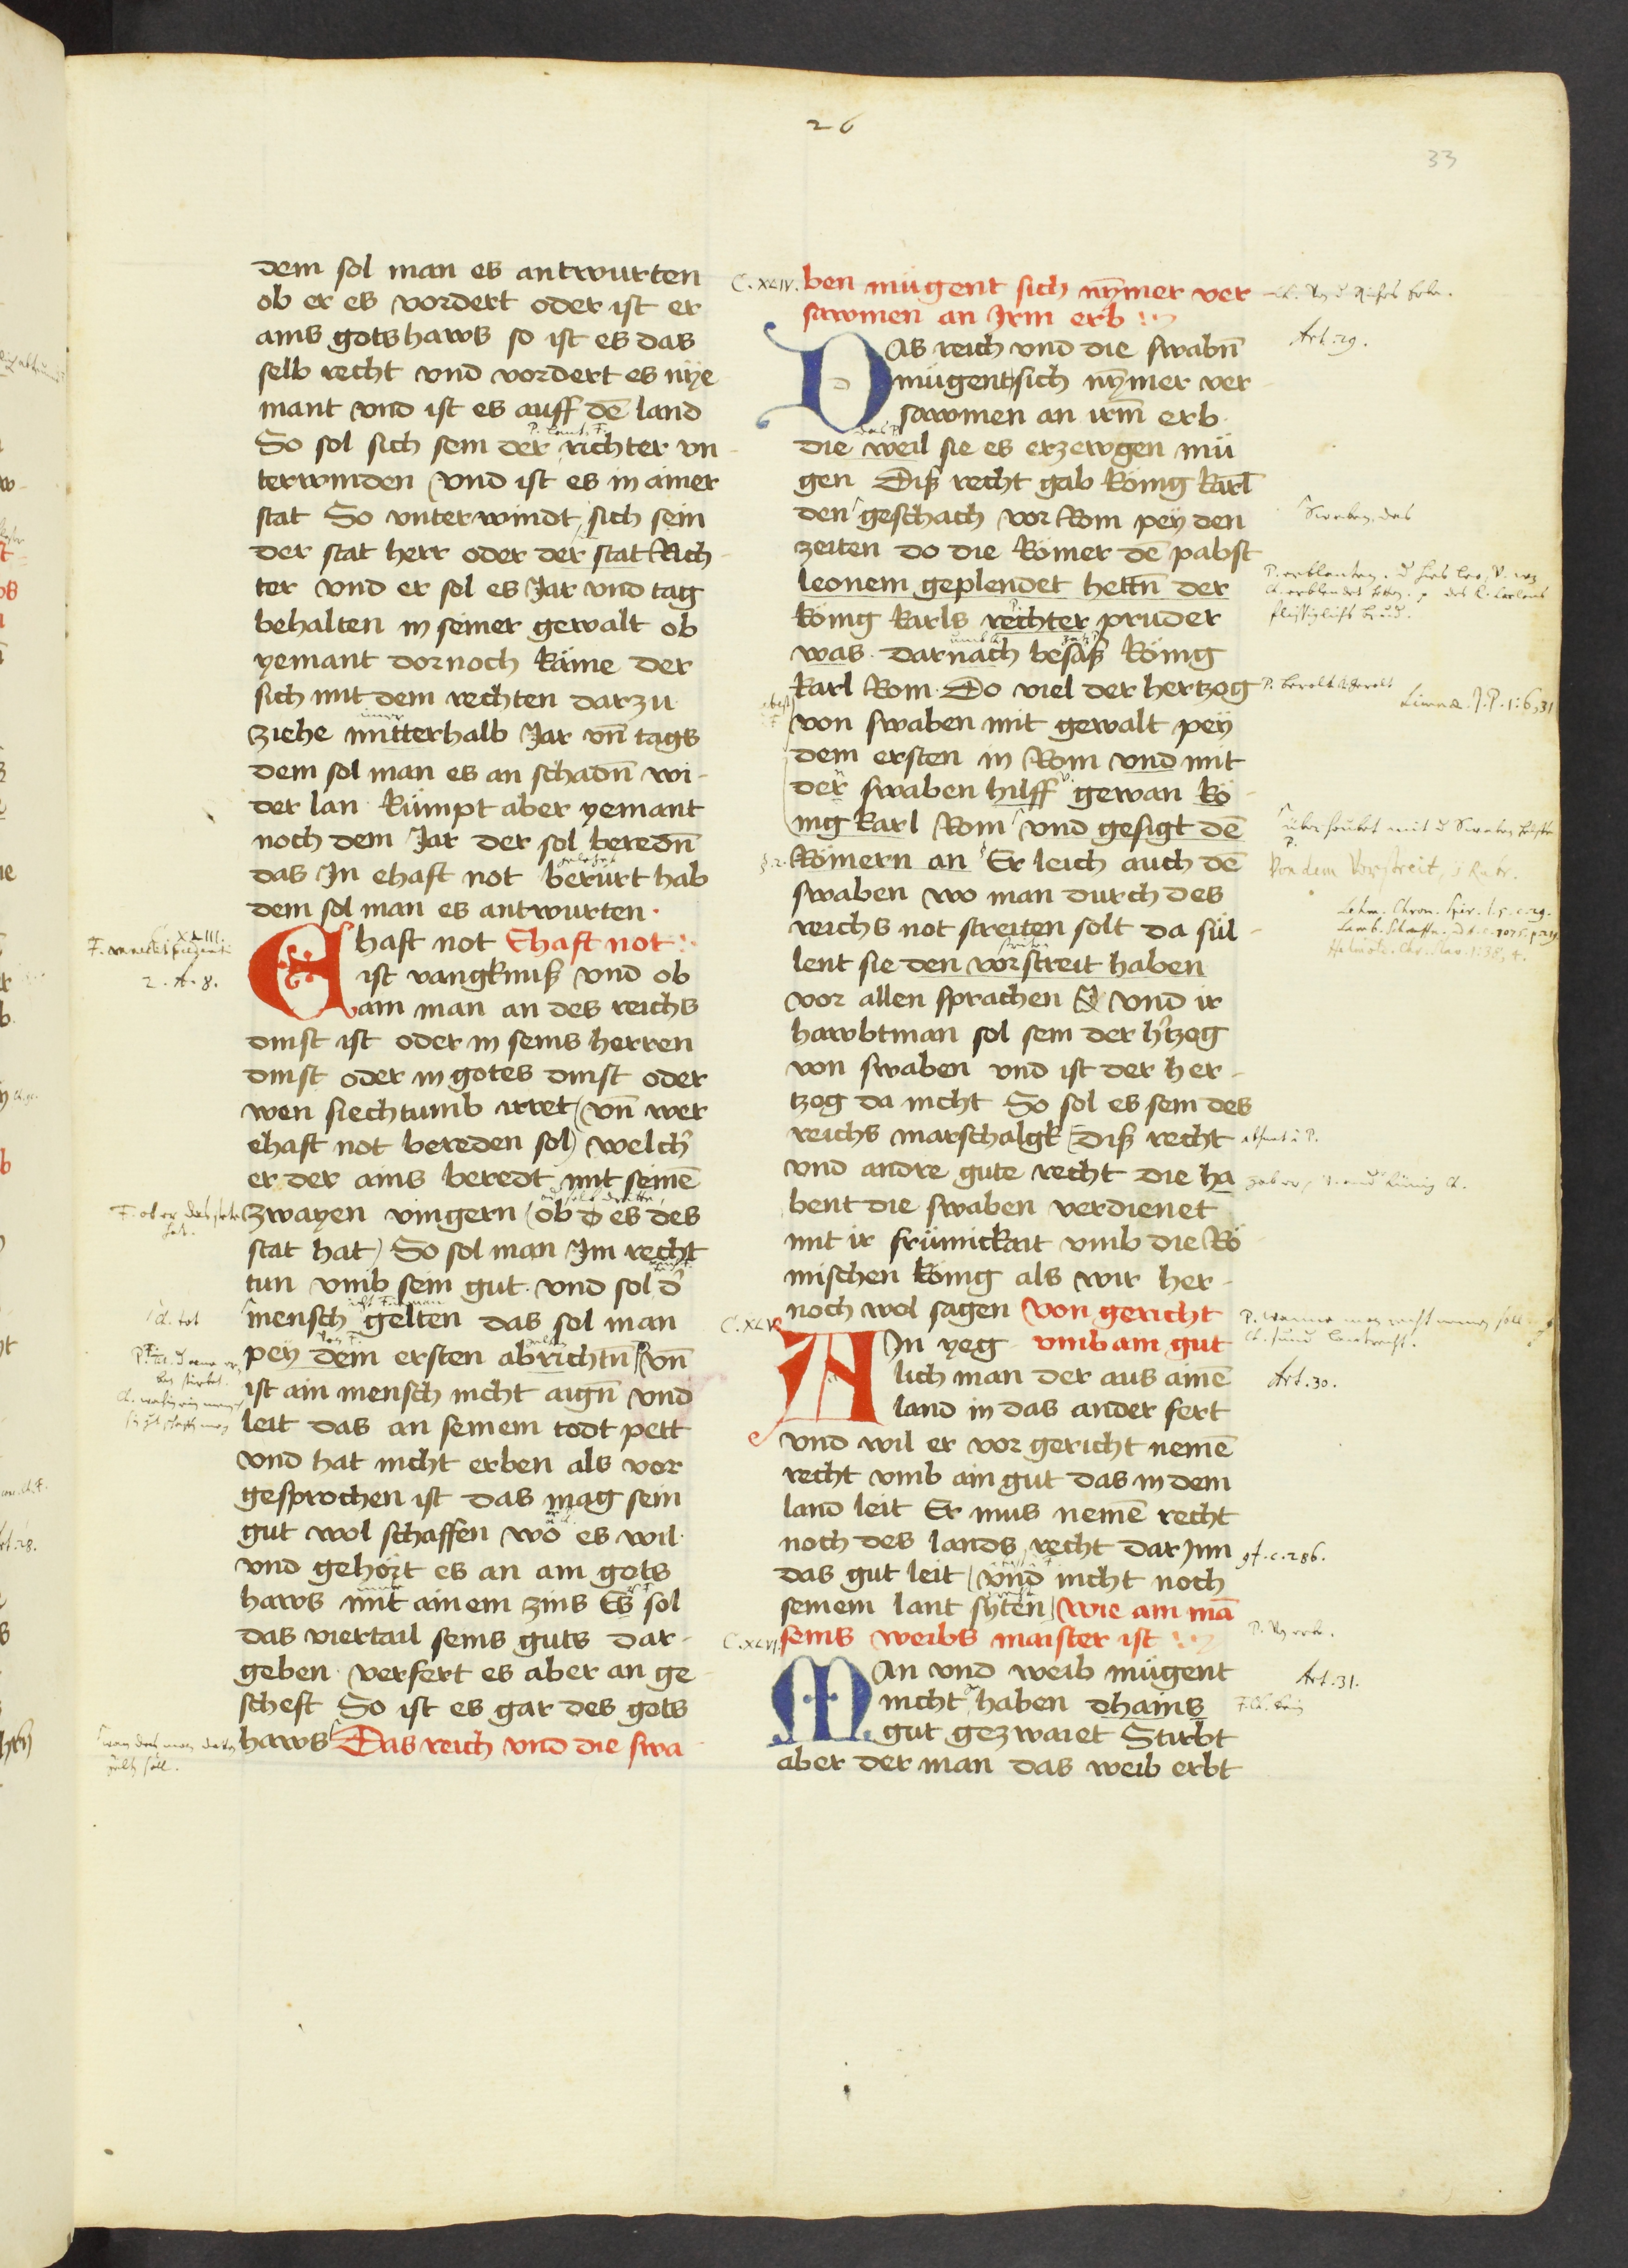 26
33
dem sol man es antwurten
ob er es vordert oder ist er
ains gotshaws so ist es das
selb recht vnd vordert es nye
mant vnd ist es auff dē land
So sol sich sein der richter vn
terwinden vnd ist es in ainer
stat So vnterwindt sich sein
der stat herr oder der stat Rich
ter vnd er sol es Jar vnd tag
behalten in seiner gewalt ob
yemant dornoch käme der
sich mit dem rechten darzu
ziehe mitterhalb Jar vn̄ tags
dem sol man es an schadn̄ wi-
der lan kümpt aber yemant
noch dem Jar der sol beredn̄
das In ehaft not berürt hab
dem sol man es antwurten
C. XLIII.
2. A. 8.
Ehaft not Ehaft not
ist vangknuß vnd ob
ain man an des reichs
dinst ist oder in seins herren
dinst oder in gotes dinst oder
wen siechtumb irret (vn̄ wer
ehaft not bereden sol) welch'
er der ains beredt mit seinē
zwayen vingern (ob d es des
stat hat) So sol man Im recht
tun vmb sein gut vnd sol d'
mensch gelten das sol man
pey dem ersten abrichtn̄ vn̄
ist ain mensch nicht aign̄ vnd
leit das an seinem todt pett
vnd hat nicht erben als vor
gesprochen ist das mag sein
gut wol schaffen wo es wil
vnd gehört es an ain gots
haws mit ainem zins Es sol
das viertail seins guts dar-
geben verfert es aber an ge
scheft So ist es gar des gots
haws Das reich vnd die swa
C. XLIV.
ben mügent sich nymer ver
sawmen an Irm erb
Art. 29.
Das reich vnd die swabn̄
mügent sich nymer ver
sawmen an irm̄ erb
die weil sie es erzewgen mü
gen Diß recht gab könig karl
den geschach vor Rom pey den
zeiten do die Römer dē pabst
leonem geplendet hettn̄ der
könig karls rechter pruder
was darnach besaß könig
karl Rom Do viel der hertzog
von swaben mit gewalt pey
dem ersten in Rom vnd mit
der swaben hilff gewan kö
nig karl Rom vnd gesigt dē
Römern an Er leich auch dē
Swaben wo man durch des
reichs not streiten solt da sül-
lent sie den vorstreit haben
vor allen sprachen vnd ir
hawbtman sol sein der h'tzog
von swaben vnd ist der her-
tzog da nicht So sol es sein des
reichs marschalgk diß recht
vnd andre gute recht die ha
bent die swaben verdienet
mit ir frümickait vmb die Rö
mischen könig als wir her-
noch wol sagen Von gericht
C. XLV.
Art. 30.
Ain yeg vmb ain gut
lich man der aus ainē
land in das ander fert
vnd wil er vor gericht nemē
recht vmb ain gut das in dem
land leit Er mus nemē recht
noch des lands recht dar Inn
das gut leit (vnd nicht noch
seinem lant syten) Wie ain mā
seins weibs maister ist
C. XLVI.
Art. 31.
Man vnd weib mügent
nicht haben dhains
gut gezwaiet Stirbt
aber der man das weib erbt